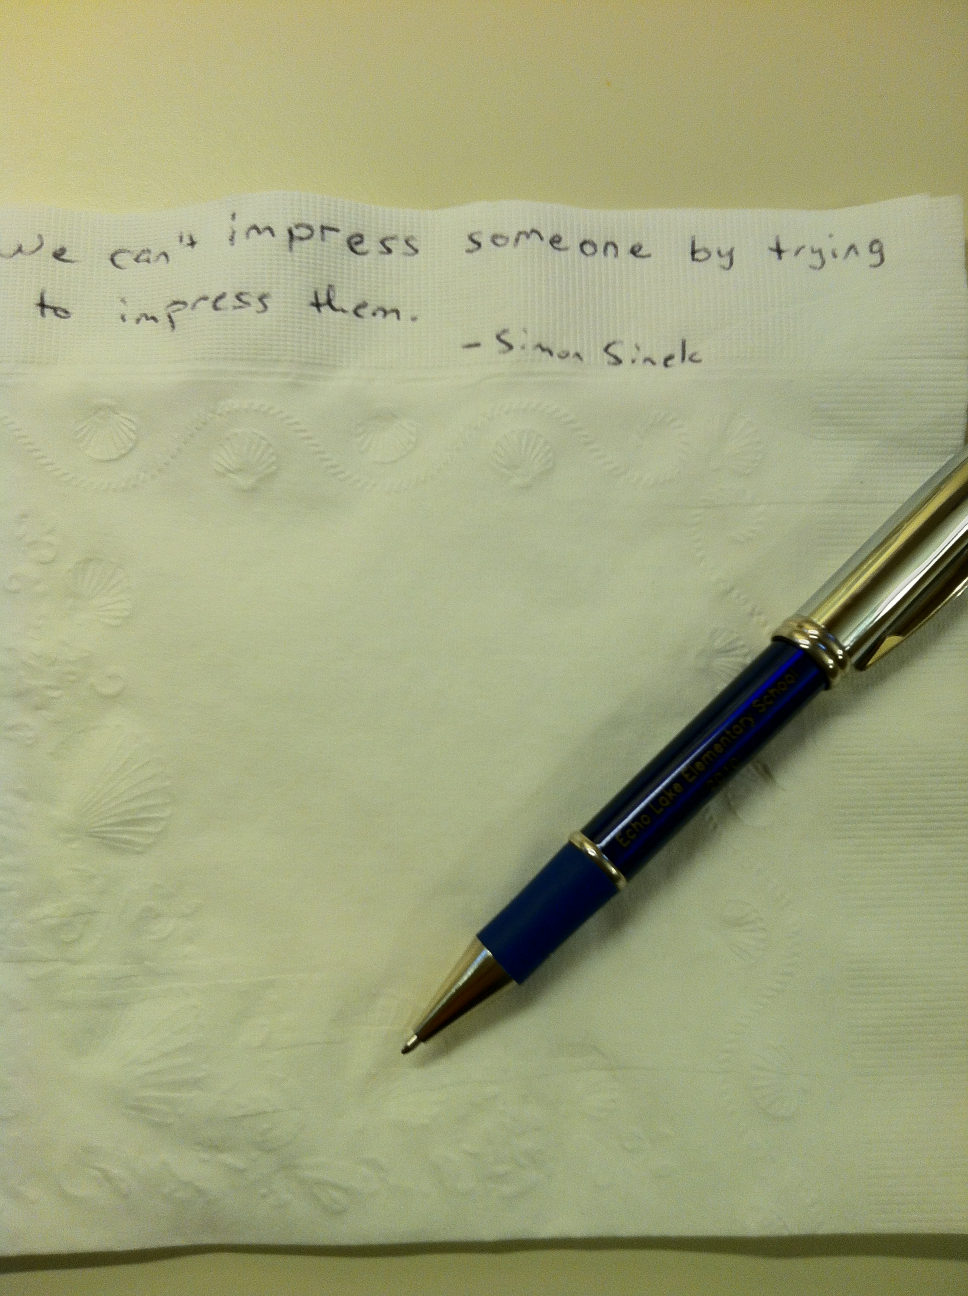 We can't impress someone by trying
to impress them.
- Simon Sinek
Echo Lake Elementary School